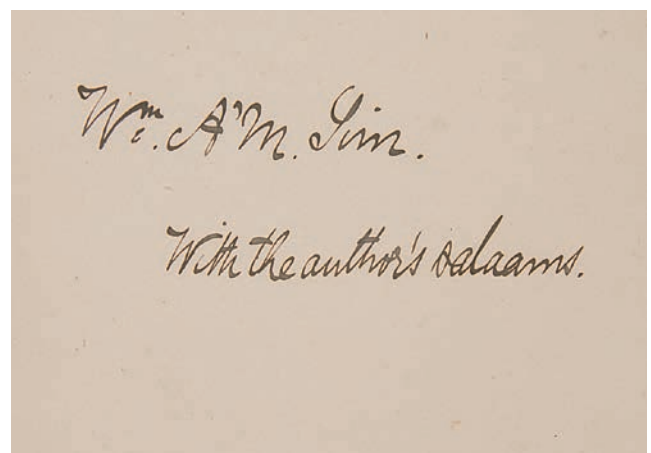 Wm. A'M. Sim.
With the author's salaams.